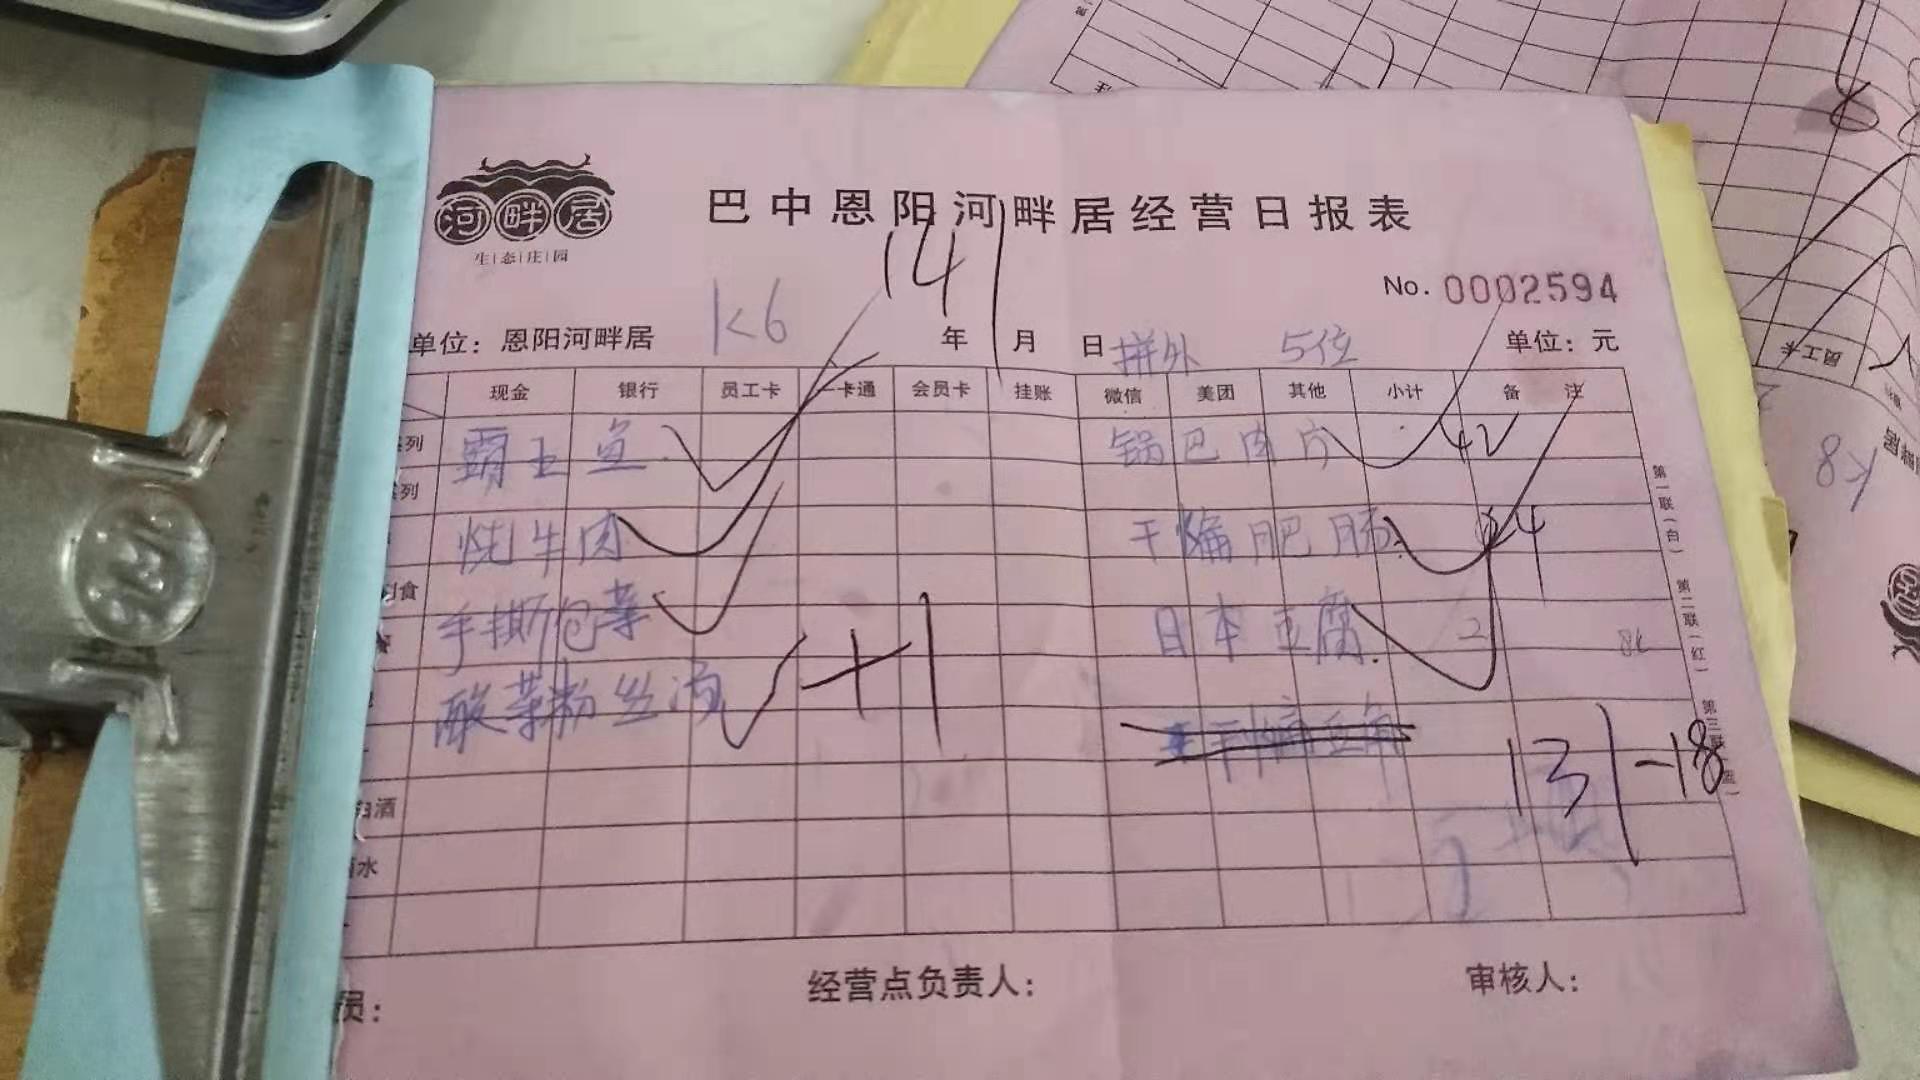 河畔居
生|态|庄|园
巴中恩阳河畔居经营日报表
141
No. 0002594
单位：恩阳河畔居 K6 年 月 日 拼外 5位 单位：元
现金 银行 员工卡 一卡通 会员卡 挂账 微信 美团 其他 小计 备 注
系列 霸王鱼 锅巴肉片 42
系列
炖牛肉 干煸肥肠 44
食 手撕包菜 日本豆腐
酸菜粉丝汤 +1
干煸豆角
131-18
白酒
酒水
员： 经营点负责人： 审核人：
第一联（白） 第二联（红） 第三联
员工卡
K8